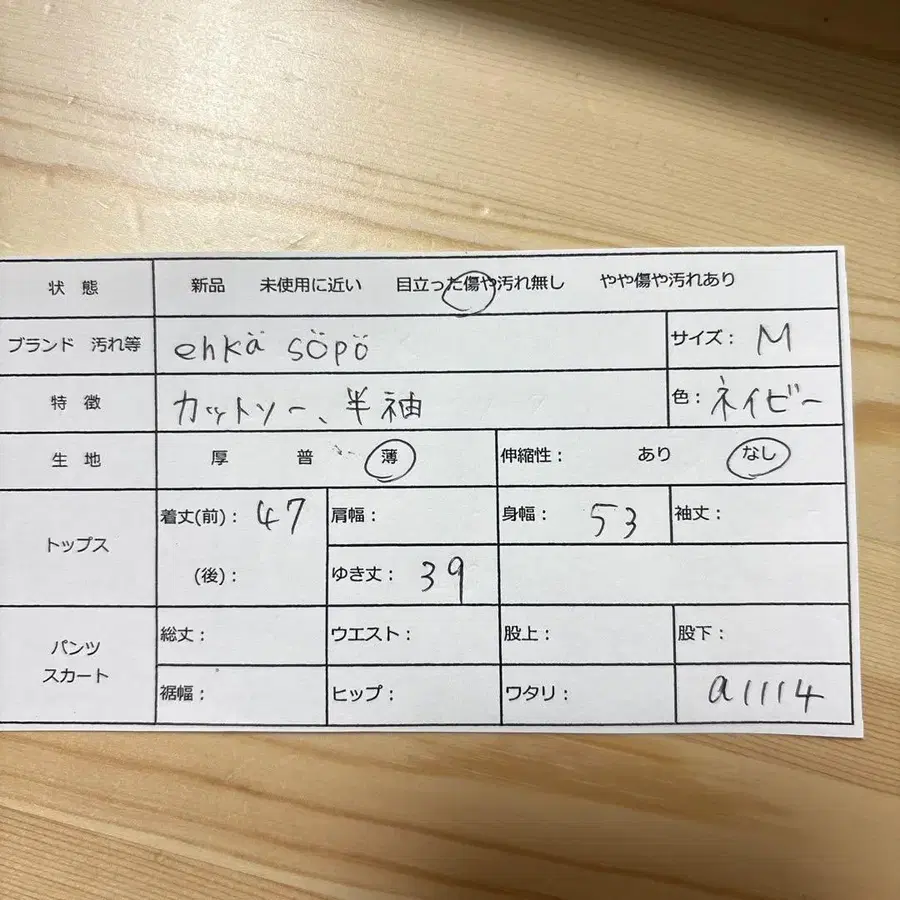 状態 新品 未使用に近い 目立った傷や汚れ無し やや傷や汚れあり
ブランド 汚れ等 ehkä söpö サイズ: M
特徴 カットソー、半袖 色: ネイビー
生地 厚 普 薄 伸縮性: あり なし
トップス 着丈(前): 47 肩幅: 身幅: 53 袖丈:
(後): ゆき丈: 39
パンツ スカート 総丈: ウエスト: 股上: 股下:
裾幅: ヒップ: ワタリ: a1114